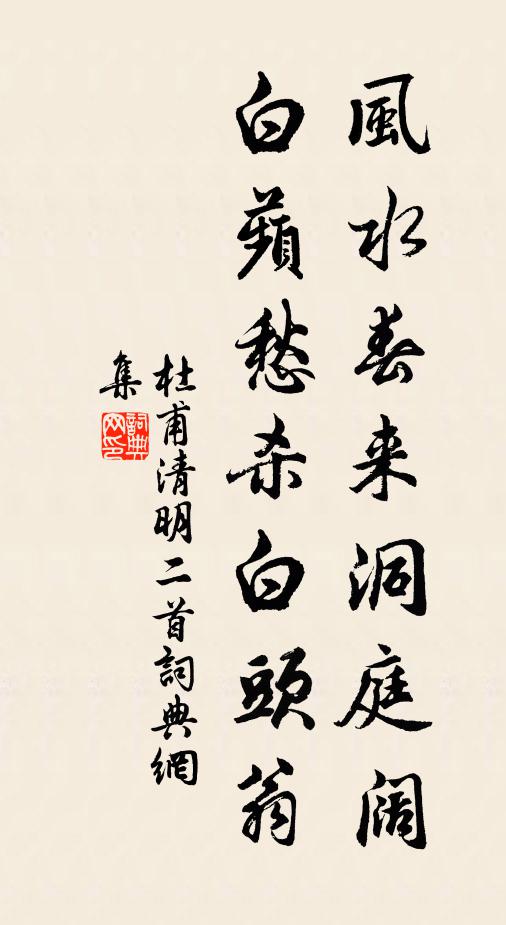 風水春来洞庭阔
白蘋愁杀白頭翁
杜甫清明二首詞典網
集
詞典网印